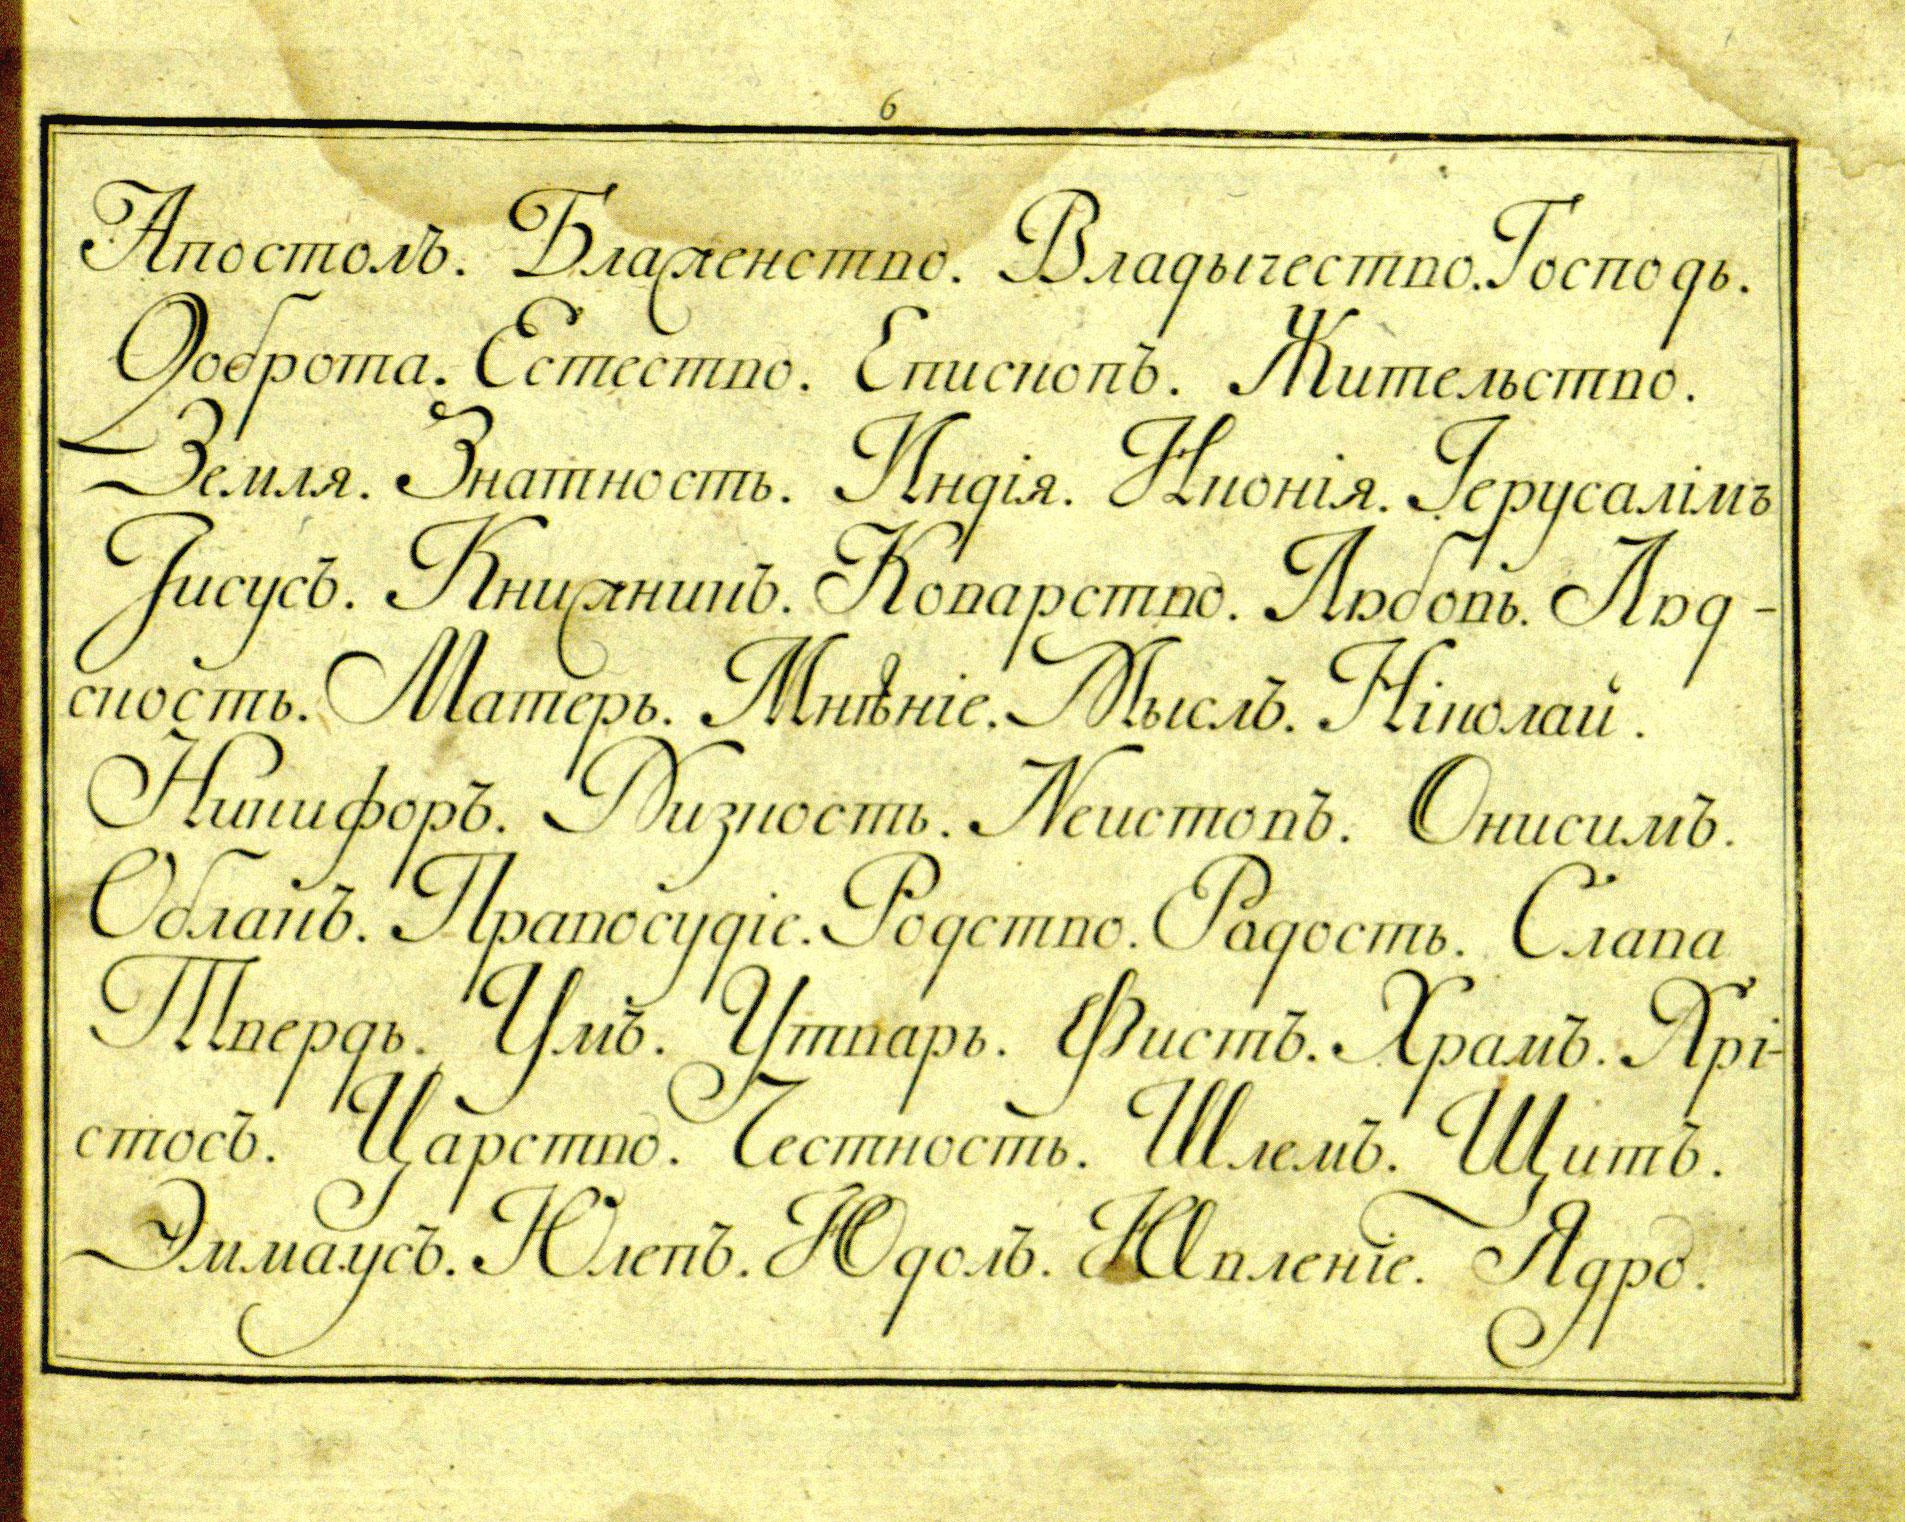 6
Апостолъ. Блаженство. Владычество. Господь.
Доброта. Естество. Епископъ. Жительство.
Земля. Знатность. Индія. Иконія. Іерусалімъ
Іисусъ. Книжникъ. Коварство. Любовь. Люд-
скость. Матерь. Мнѣніе. Мыслъ. Ніколай.
Никифоръ. Низкость. Неистовъ. Онисимъ.
Облакъ. Правосудіе. Родство. Радость. Слава
Твердь. Умъ. Утварь. Фистъ. Храмъ. Хрі-
стосъ. Царство. Честность. Шлемъ. Щитъ.
Эммаусъ. Юлевъ. Юдолъ. Ꙗвленіе. Ядро.